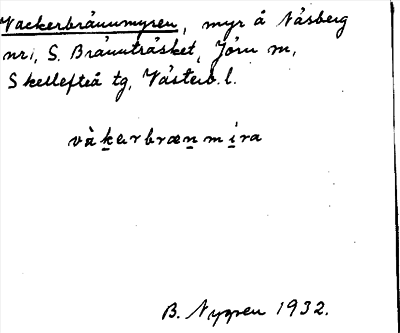 Vackerbrännmyren, myr å Näsberg
nr 1, S. Brännträsket, Jörn sn,
Skellefteå tg, Västerb. l.
vàkerbrænmira
B. Nygren 1932.